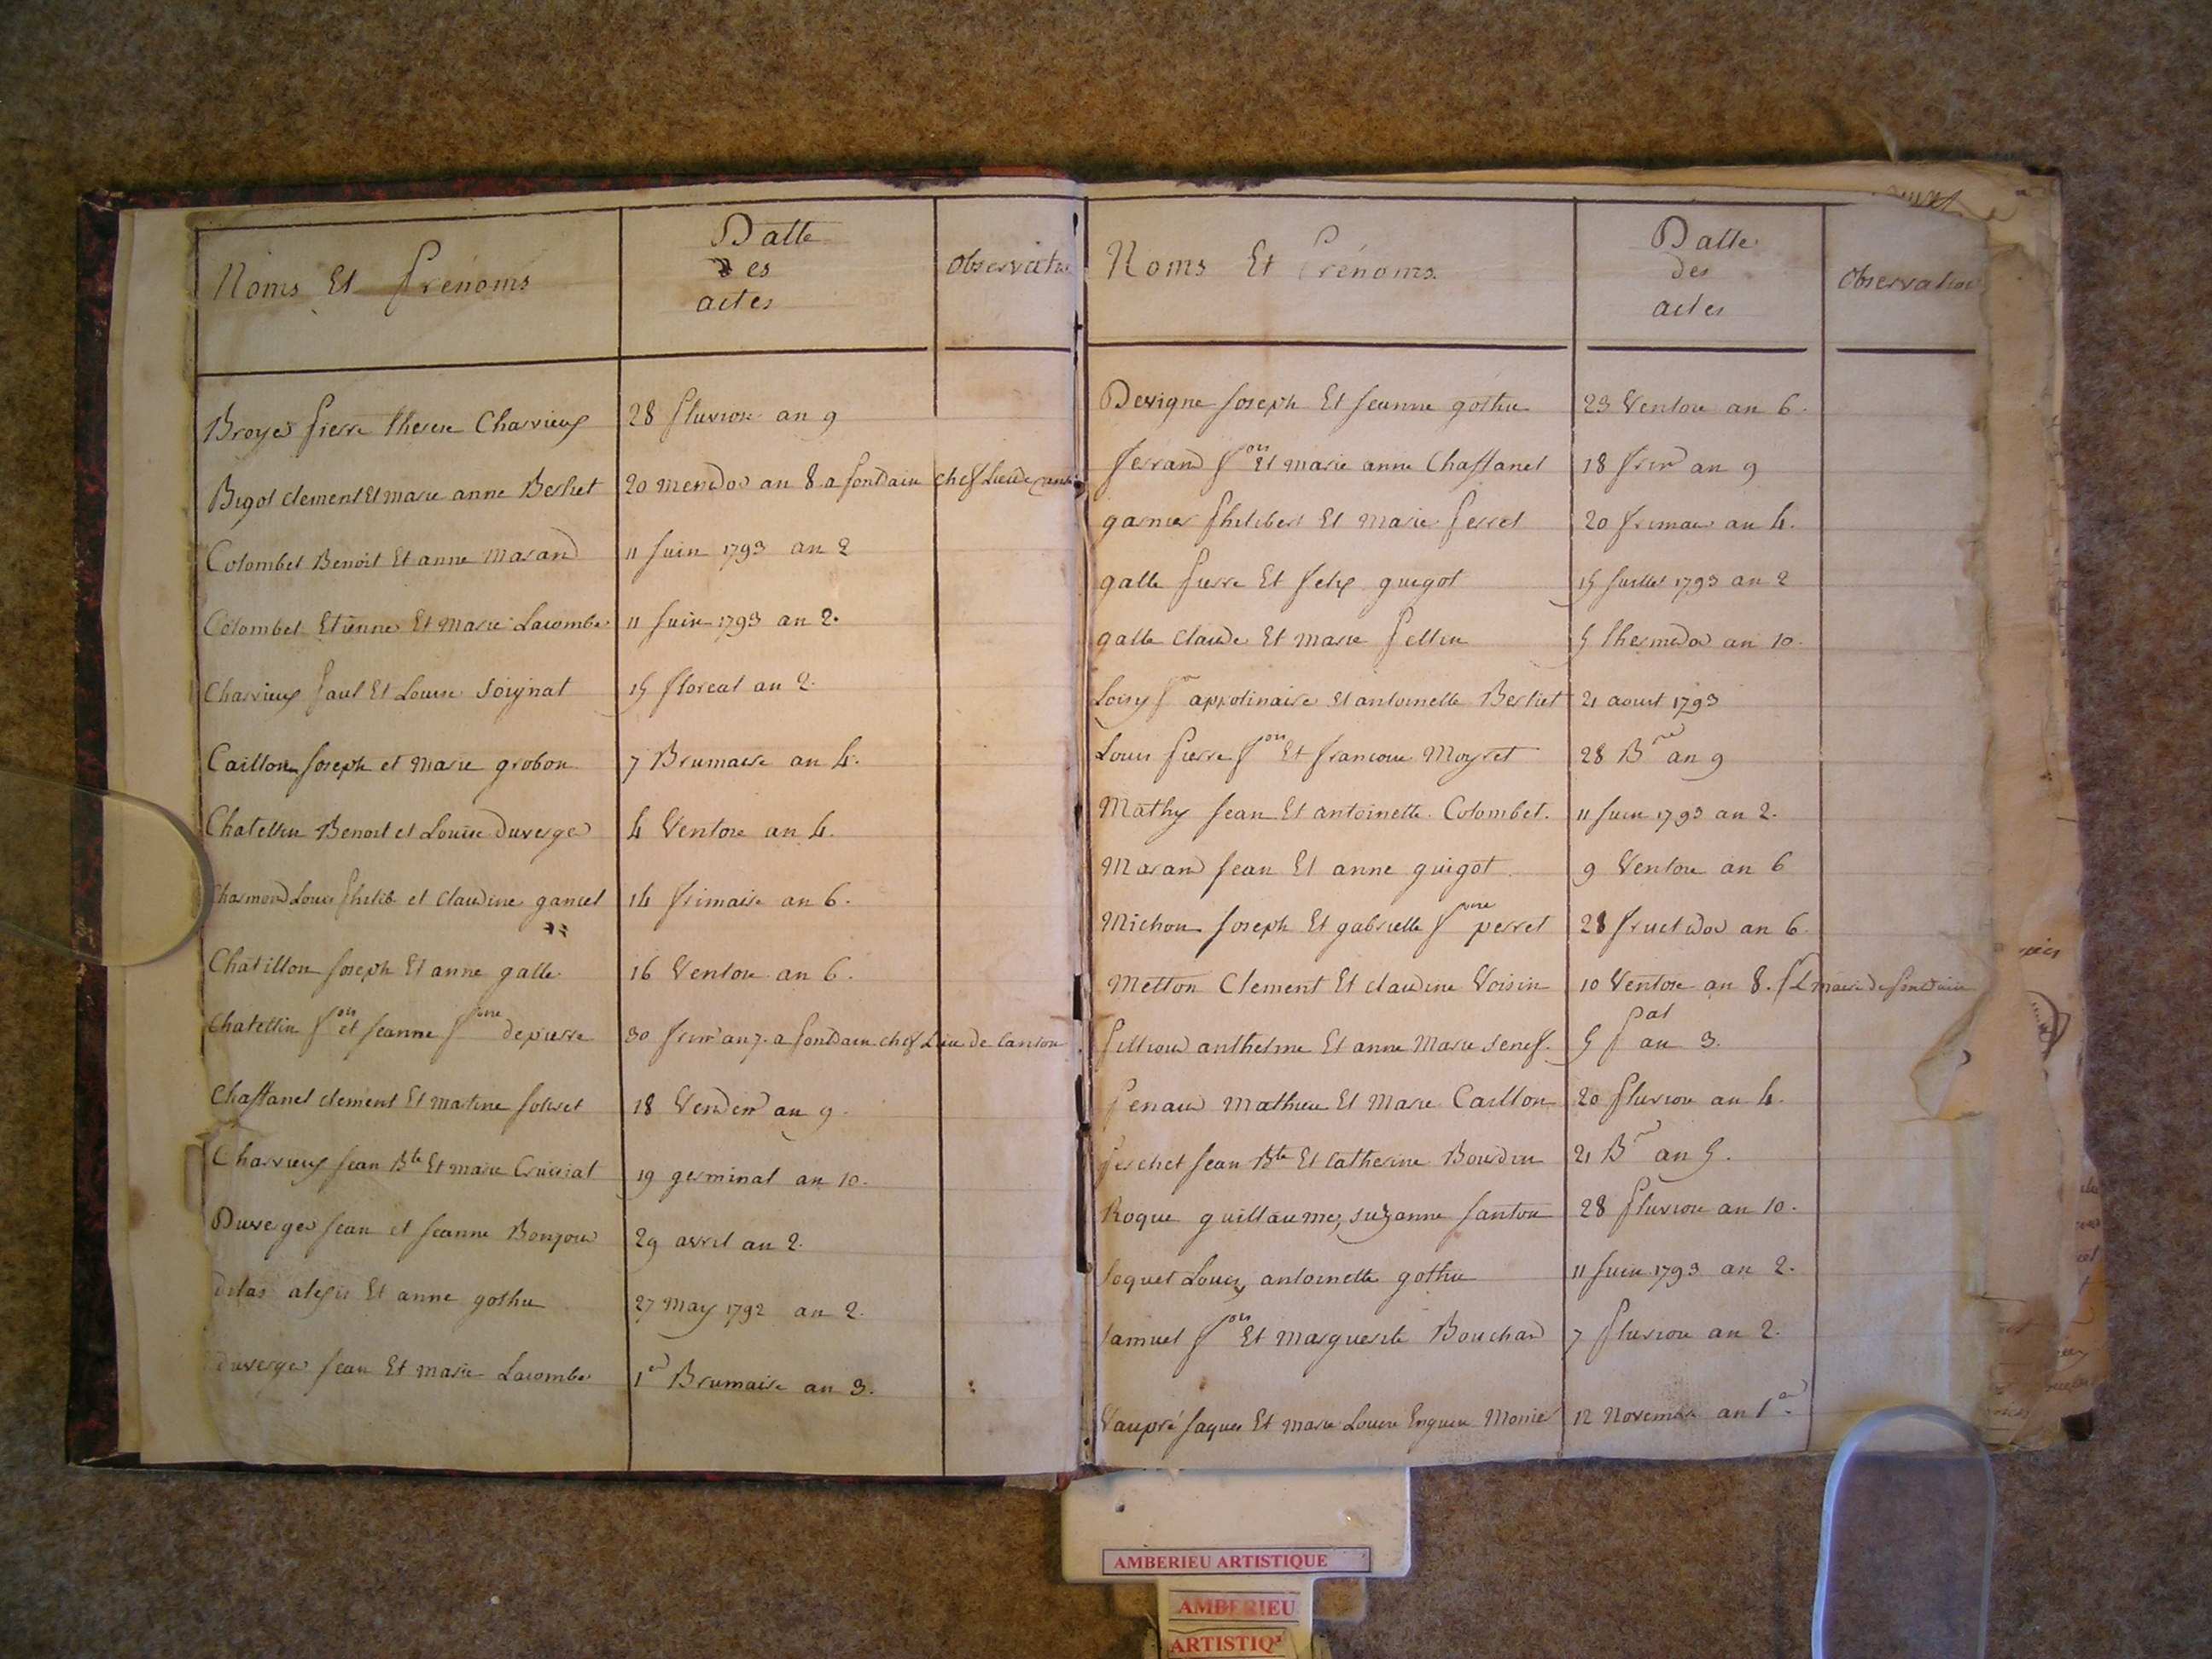 Noms Et Prénoms
Datte
des
actes
Observatio
Broyer Pierre Therese Charvieux 28 Pluviose an 9
Bigot clement Et marie anne Berliet 20 messidor an 8 a Pondain chef Lieu de canton
Colombet Benoit Et anne Marand 11 Juin 1793 an 2
Colombet Etienne Et Marie Lacombe 11 Juin 1793 an 2.
Charvieux Paul Et Louise Soignat 15 floreal an 2.
Caillon Joseph et Marie grobon 7 Brumaire an 4.
Chatellin Benoit et Louise Duverger 4 Ventose an 4.
Charmond Louis Philib et Claudine 14 frimaire an 6.
Chatillon Joseph Et anne galle 16 Ventose an 6.
Chatellin fois et Jeanne foise depierre 30 frim an 7. a Pondain chef Lieu de Canton
Chaffanel clement Et Martine 18 Vendem an 9.
Charvieux Jean Bte Et marie Cruiziat 19 germinal an 10.
Duverger Jean et Jeanne Bonjour 29 avril an 2.
delas alexis Et anne gothu 27 may 1792 an 2.
duverger Jean Et marie Lacombe 1er Brumaire an 3.
Noms Et Prénoms
Datte
des
actes
Observation
Devigne Joseph Et Jeanne gothu 23 Ventose an 6.
ferrand fois Et marie anne Chaffanel 18 frim an 9
garnier Philibert Et Marie Perret 20 frimaire an 4.
galle Pierre Et felix guigot 15 Juillet 1793 an 2
galle Claude Et marie Pellin 5 thermidor an 10.
appolinaire Et antoinette Berliet 21 aoust 1793
Louis Pierre fois Et francoise Moyret 28 Bre an 9
Mathy Jean Et antoinette Colombet. 11 Juin 1793 an 2.
Marand Jean Et anne guigot 9 Ventose an 6
Michon Joseph Et gabrielle foise perret 28 fructidor an 6
Metton Clement Et claudine Voisin 10 Ventose an 8. mairie de Pondain
anthelme Et anne Marie 5 Pal an 3.
Penaud Mathieu Et Marie Caillon 20 Pluviose an 4.
Perchet Jean Bte Et Catherine Bourdin 21 Bre an 5.
Roque guillaume, suzanne Janton 28 Pluviose an 10.
Soquet Louis, antoinette gothu 11 Juin 1793 an 2.
Samuel fois Et Marguerite Bouchard 7 Pluviose an 2.
Vaupré Jaques Et marie Louise 12 Novembre an 1er.
AMBERIEU ARTISTIQUE
AMBERIEU
ARTISTIQ